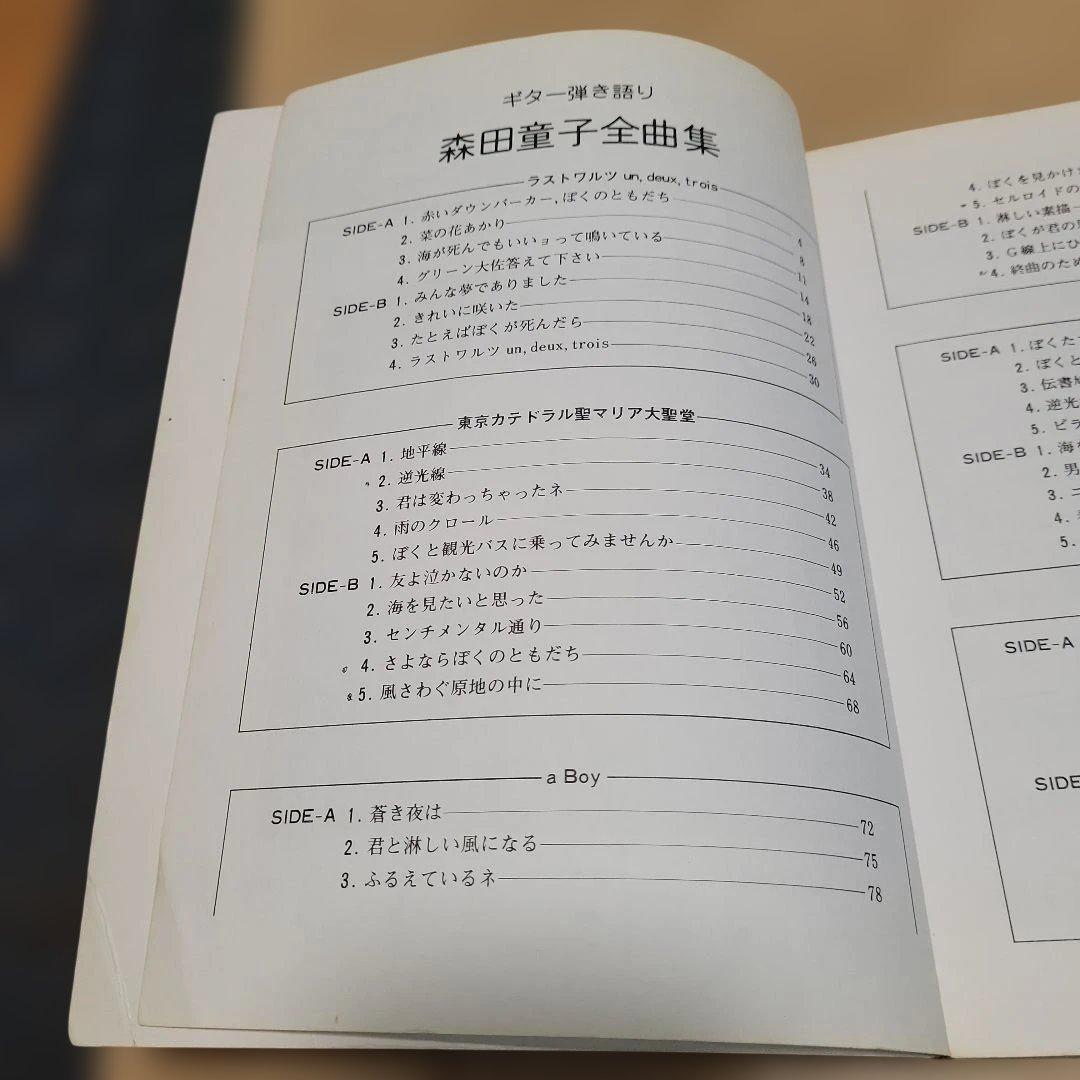 ギター弾き語り
森田童子全曲集
ラストワルツ un, deux, trois
SIDE-A 1. 赤いダウンパーカー,ぼくのともだち 4
2. 菜の花あかり 8
3. 海が死んでもいいョって鳴いている 11
4. グリーン大佐答えて下さい 14
SIDE-B 1. みんな夢でありました 18
2. きれいに咲いた 22
3. たとえばぼくが死んだら 26
4. ラストワルツ un, deux, trois 30
東京カテドラル聖マリア大聖堂
SIDE-A 1. 地平線 34
2. 逆光線 38
3. 君は変わっちゃったネ 42
4. 雨のクロール 46
5. ぼくと観光バスに乗ってみませんか 49
SIDE-B 1. 友よ泣かないのか 52
2. 海を見たいと思った 56
3. センチメンタル通り 60
4. さよならぼくのともだち 64
5. 風さわぐ原地の中に 68
a Boy
SIDE-A 1. 蒼き夜は 72
2. 君と淋しい風になる 75
3. ふるえているネ 78
4. ぼくを見かけ
5. セルロイドの
SIDE-B 1. 淋しい素描
2. ぼくが君の
3. G線上にひ
4. 終曲のため
SIDE-A 1. ぼくた
2. ぼくと
3. 伝書
4. 逆光
5. ビラ
SIDE-B 1. 海
2. 男
3.
4.
5.
SIDE-A
SIDE